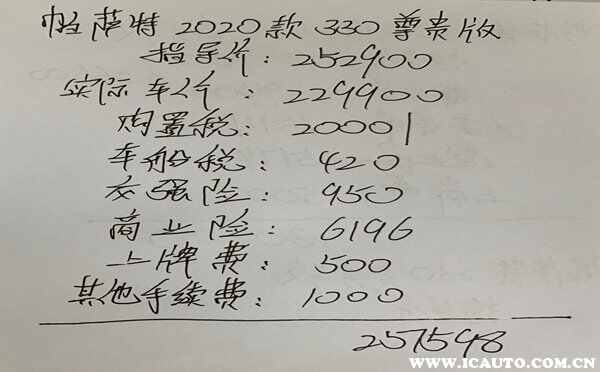 帕萨特 2020款 330 尊贵版
指导价：252900
实际车价：229900
购置税：20001
车船税：420
交强险：950
商业险：6196
上牌费：500
其他手续费：1000
257548
WWW.ICAUTO.COM.CN